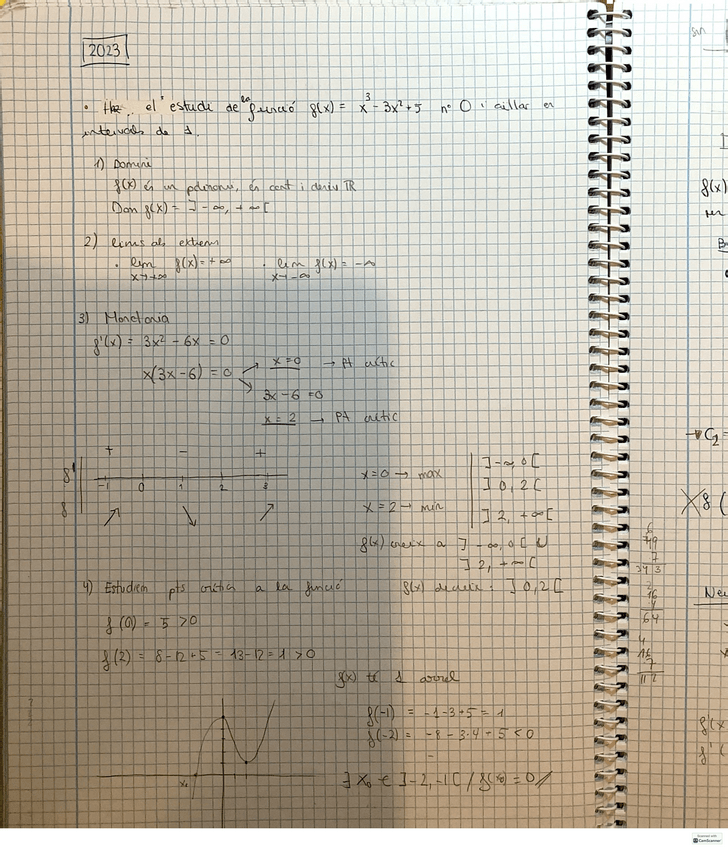 2023
• el estudi de la funció f(x) = x³ - 3x² + 5 nº 0 i aïllar en
intervals de 1.
1) Domini
f(x) és un polinomi, és cont i deriv ℝ
Dom f(x) = ]-∞, +∞[
2) lims als extrems
• lim x→+∞ f(x) = +∞ • lim x→-∞ f(x) = -∞
3) Monotonia
f'(x) = 3x² - 6x = 0
x(3x-6) = 0 x=0 → Pt crític
3x-6=0
x=2 → Pt crític
+ - +
f' -1 0 1 2 3
f ↗ ↘ ↗
x=0 → max ]-∞,0[
]0,2[
x=2 → min ]2,+∞[
f(x) creix a ]-∞,0[ U
]2,+∞[
4) Estudiem pts crítics a la funció f(x) decreix: ]0,2[
f(0) = 5 >0
f(2) = 8-12+5 = 13-12 = 1 >0
f(x) té 1 arrel
f(-1) = -1-3+5 = 1
f(-2) = -8-3·4+5 <0
x₀
∃ x₀ ∈ ]-2,-1[ / f(x₀) = 0 //
sin
f(x)
→ C₂ =
f (
6
749
7
343
2
16
4
64
4
16
7
112
f'(x
f'(
Scanned with
CamScanner